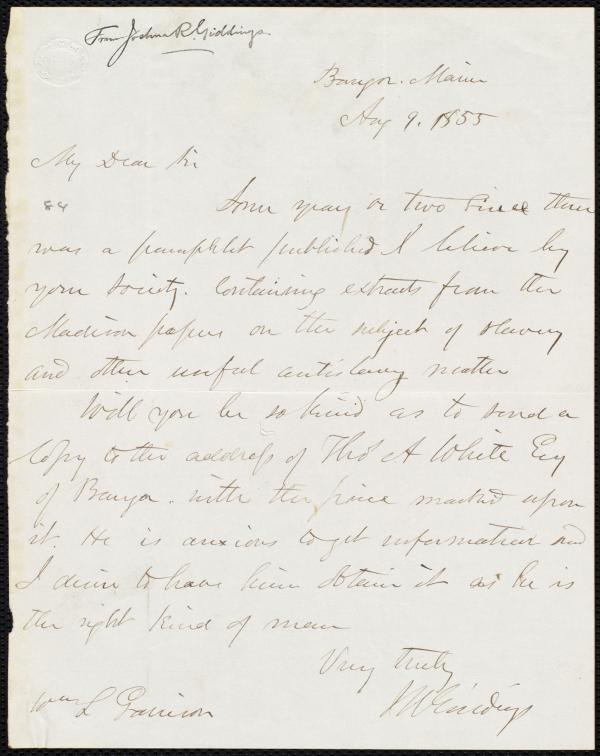 From Joshua R. Giddings.
Bangor. Maine
Aug 9. 1855
My Dear Sir
84
Some year, or two since there
was a pamphlet published I believe by
your Society. Containing extracts from the
Madison papers on the subject of slavery
and other useful antislavery matter
Will you be so kind as to send a
Copy to the address of Thos A White Esq
of Bangor. with the price marked upon
it. He is anxious to get information and
I desire to have him obtain it as he is
the right kind of man
Very truly
J R Giddings
Wm L Garrison